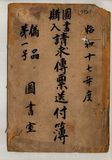 昭和十七年度
圖書
購入請求傳票送付簿
備品
第一号
圖書室